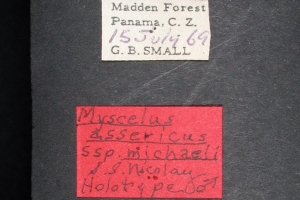 Madden Forest
Panama, C. Z.
15 July 69
G. B. SMALL
Myscelus
assericus
ssp. michaeli
S. S. Nicolay
Holotype ♂